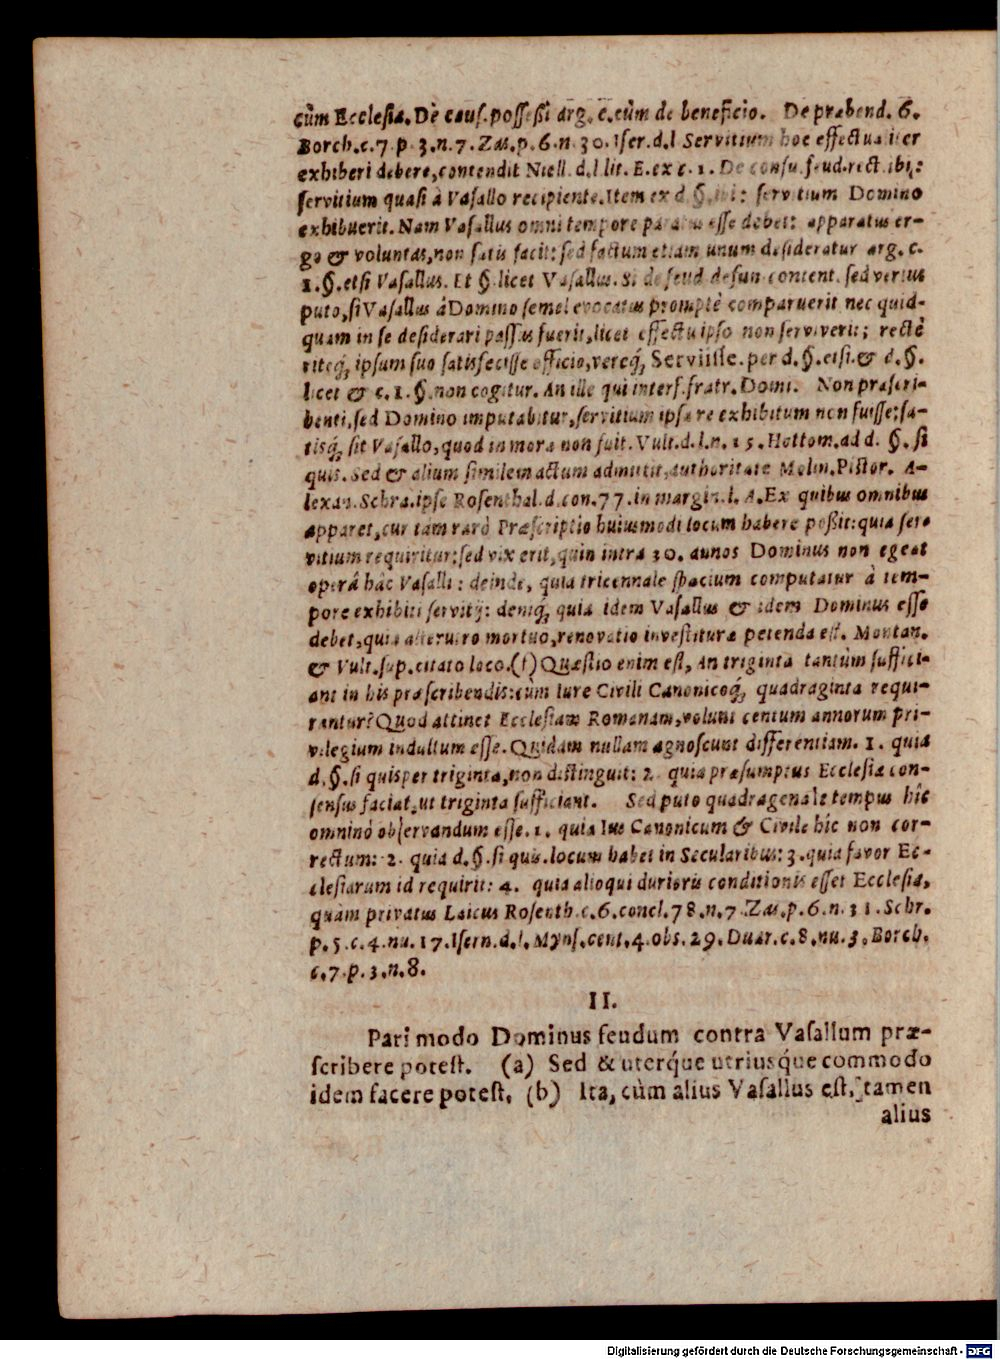 cùm Ecclesia. Dè caus. possessi arg. c. cùm de beneficio. De præbend. 6.
Borch. c. 7. p. 3. n. 7. Zas. p. 6. n. 30. Iser. d. l Servitium hoc effectualiter
exhiberi debere, contendit Niell. d. l lit. E. ex c. 1. De consu. feud. rect. ibi:
servitium quasi à Vasallo recipiente. Item ex d. §. ibi: servitium Domino
exhibuerit. Nam Vasallus omni tempore paratus esse debet: apparatus er-
go & voluntas, non satis facit: sed factum etiam unum desideratur arg. c.
1. §. etsi Vasallus. Et §. licet Vasallus. Si de feud defun. content. sed verius
puto, si Vasallus à Domino semel evocatus promptè comparuerit nec quid-
quam in se desiderari passus fuerit, licet effectu ipso non serviverit; rectè
riteq́; ipsum suo satisfecisse officio, vereq́; Serviisse. per d. §. etsi. & d. §.
licet & c. 1. §. non cogitur. An ille qui interf. fratr. Domi. Non præscri-
benti, sed Domino imputabitur, servitium ipsa re exhibitum non fuisse; sa-
tisq́; sit Vasallo, quod in mora non fuit. Vult. d. l. n. 15. Hottom. ad d. §. si
quis. Sed & alium similem actum admittit, authoritate Molin. Pistor. A-
lexan. Schra. ipse Rosenthal. d. con. 77. in margin. l. A. Ex quibus omnibus
apparet, cur tam rarò Præscriptio huiusmodi locum habere poßit: quia ser-
vitium requiritur: sed vix erit, quin intra 30. annos Dominus non egeat
operâ hâc Vasalli: deinde, quia tricennale spacium computatur à tem-
pore exhibiti servitij: deniq́; quia idem Vasallus & idem Dominus esse
debet, quia alterutro mortuo, renovatio investituræ petenda est. Montan.
& Vult. sup. citato loco. (f) Quæstio enim est, an triginta tantùm suffici-
ant in his præscribendis: cùm Iure Civili Canonicoq́; quadraginta requi-
rantur? Quod attinet Ecclesiam Romanam, volunt centum annorum pri-
vilegium indultum esse. Quidam nullam agnoscunt differentiam. 1. quia
d. §. si quis per triginta, non distinguit: 2. quia præsumptus Ecclesiæ con-
sensus faciat, ut triginta sufficiant. Sed puto quadragenale tempus hîc
omninò observandum esse. 1. quia Ius Canonicum & Civile hîc non cor-
rectum: 2. quia d. §. si quis. locum habet in Secularibus: 3. quia favor Ec-
clesiarum id requirit: 4. quia alioqui durioris conditionis esset Ecclesia,
quàm privatus Laicus Rosenth. c. 6. concl. 78. n. 7. Zas. p. 6. n. 31. Schr.
p. 5. c. 4. nu. 17. Isern. d. l. Myns. cent. 4. obs. 29. Duar. c. 8. nu. 3. Borch.
c. 7. p. 3. n. 8.
II.
Pari modo Dominus feudum contra Vasallum præ-
scribere potest. (a) Sed & uterq́ue utriusq́ue commodo
idem facere potest. (b) Ita, cùm alius Vasallus est, tamen
alius
Digitalisierung gefördert durch die Deutsche Forschungsgemeinschaft - DFG